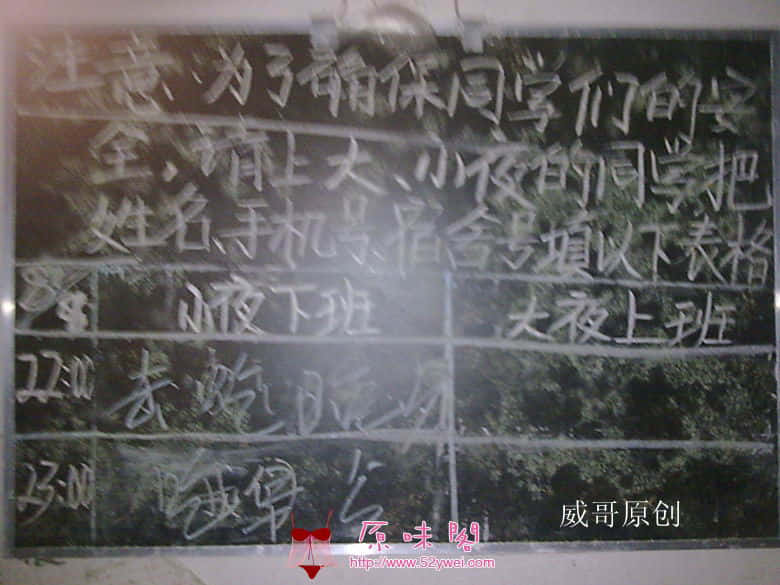 注意、为了确保同学们的安
全、请上大、小夜的同学把
姓名、手机号、宿舍号填以下表格
小夜下班 大夜上班
22:00 去
23:00
威哥原创
原味閣
http://www.52ywei.com